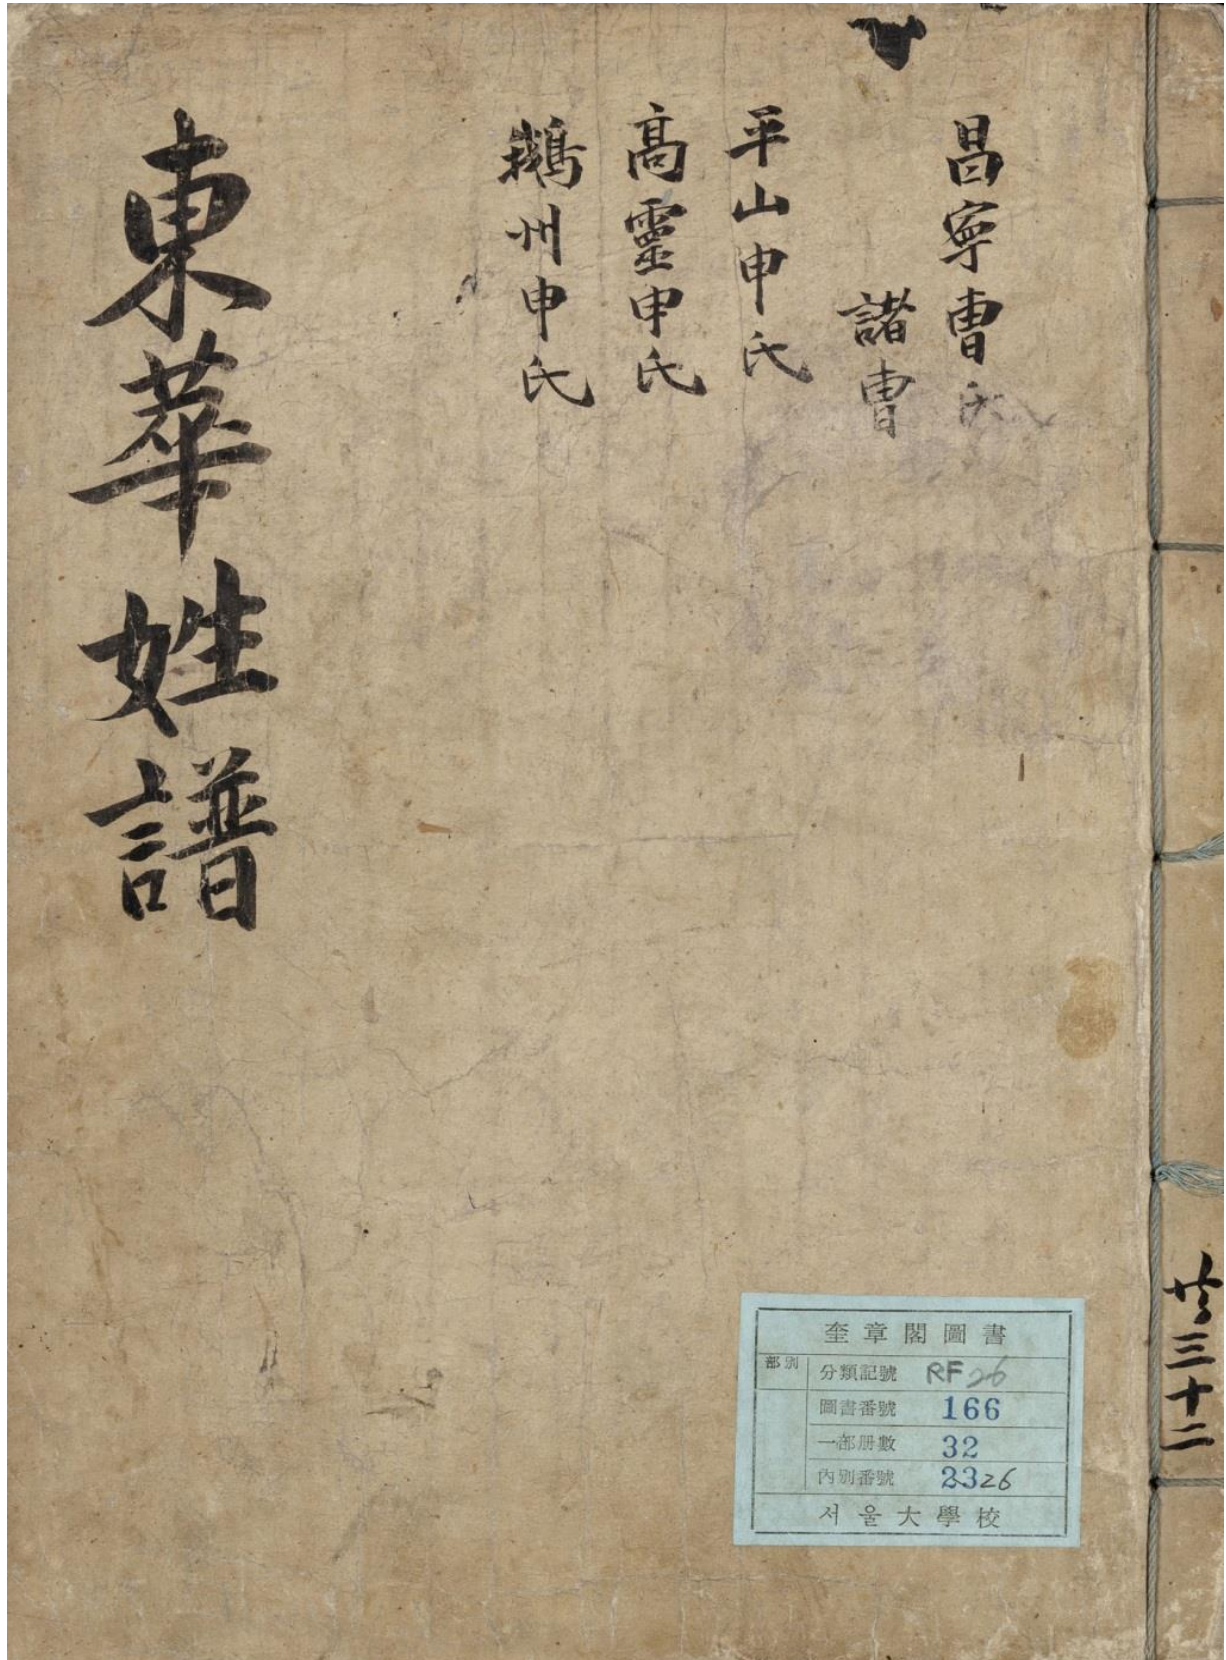 昌寧曺氏
諸曺
平山申氏
高靈申氏
鵝州申氏
東華姓譜
共三十二
奎章閣圖書
部別
分類記號 RF 26
圖書番號 166
一部册數 32
內別番號 2326
서울大學校